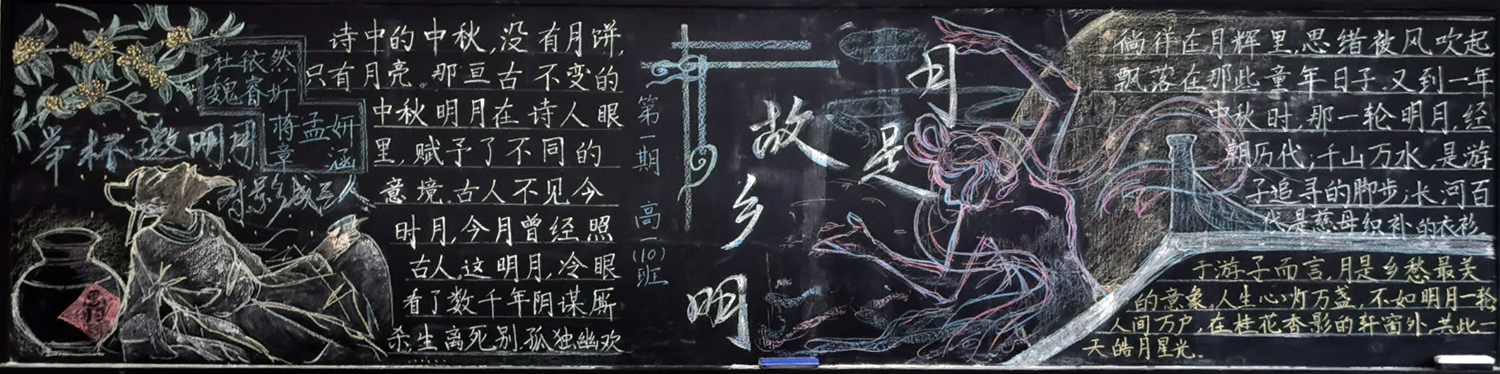 杜依然
魏睿圻
蒋孟妍
章涵
举杯邀明月
对影成三人
诗中的中秋，没有月饼，
只有月亮。那亘古不变的
中秋明月在诗人眼
里，赋予了不同的
意境。古人不见今
时月，今月曾经照
古人。这明月，冷眼
看了数千年阴谋厮
杀，生离死别，孤独幽欢
第一期 高一(10)班
月是
故乡明
徜徉在月辉里，思绪被风吹起
飘落在那些童年日子。又到一年
中秋时，那一轮明月，经
朝历代；千山万水，是游
子追寻的脚步；冰河百
代是慈母织补的衣衫。
于游子而言，月是乡愁最美
的意象，人生心灯万盏，不如明月一轮
人间万户，在桂花香影的轩窗外，共此一
天皓月星光。